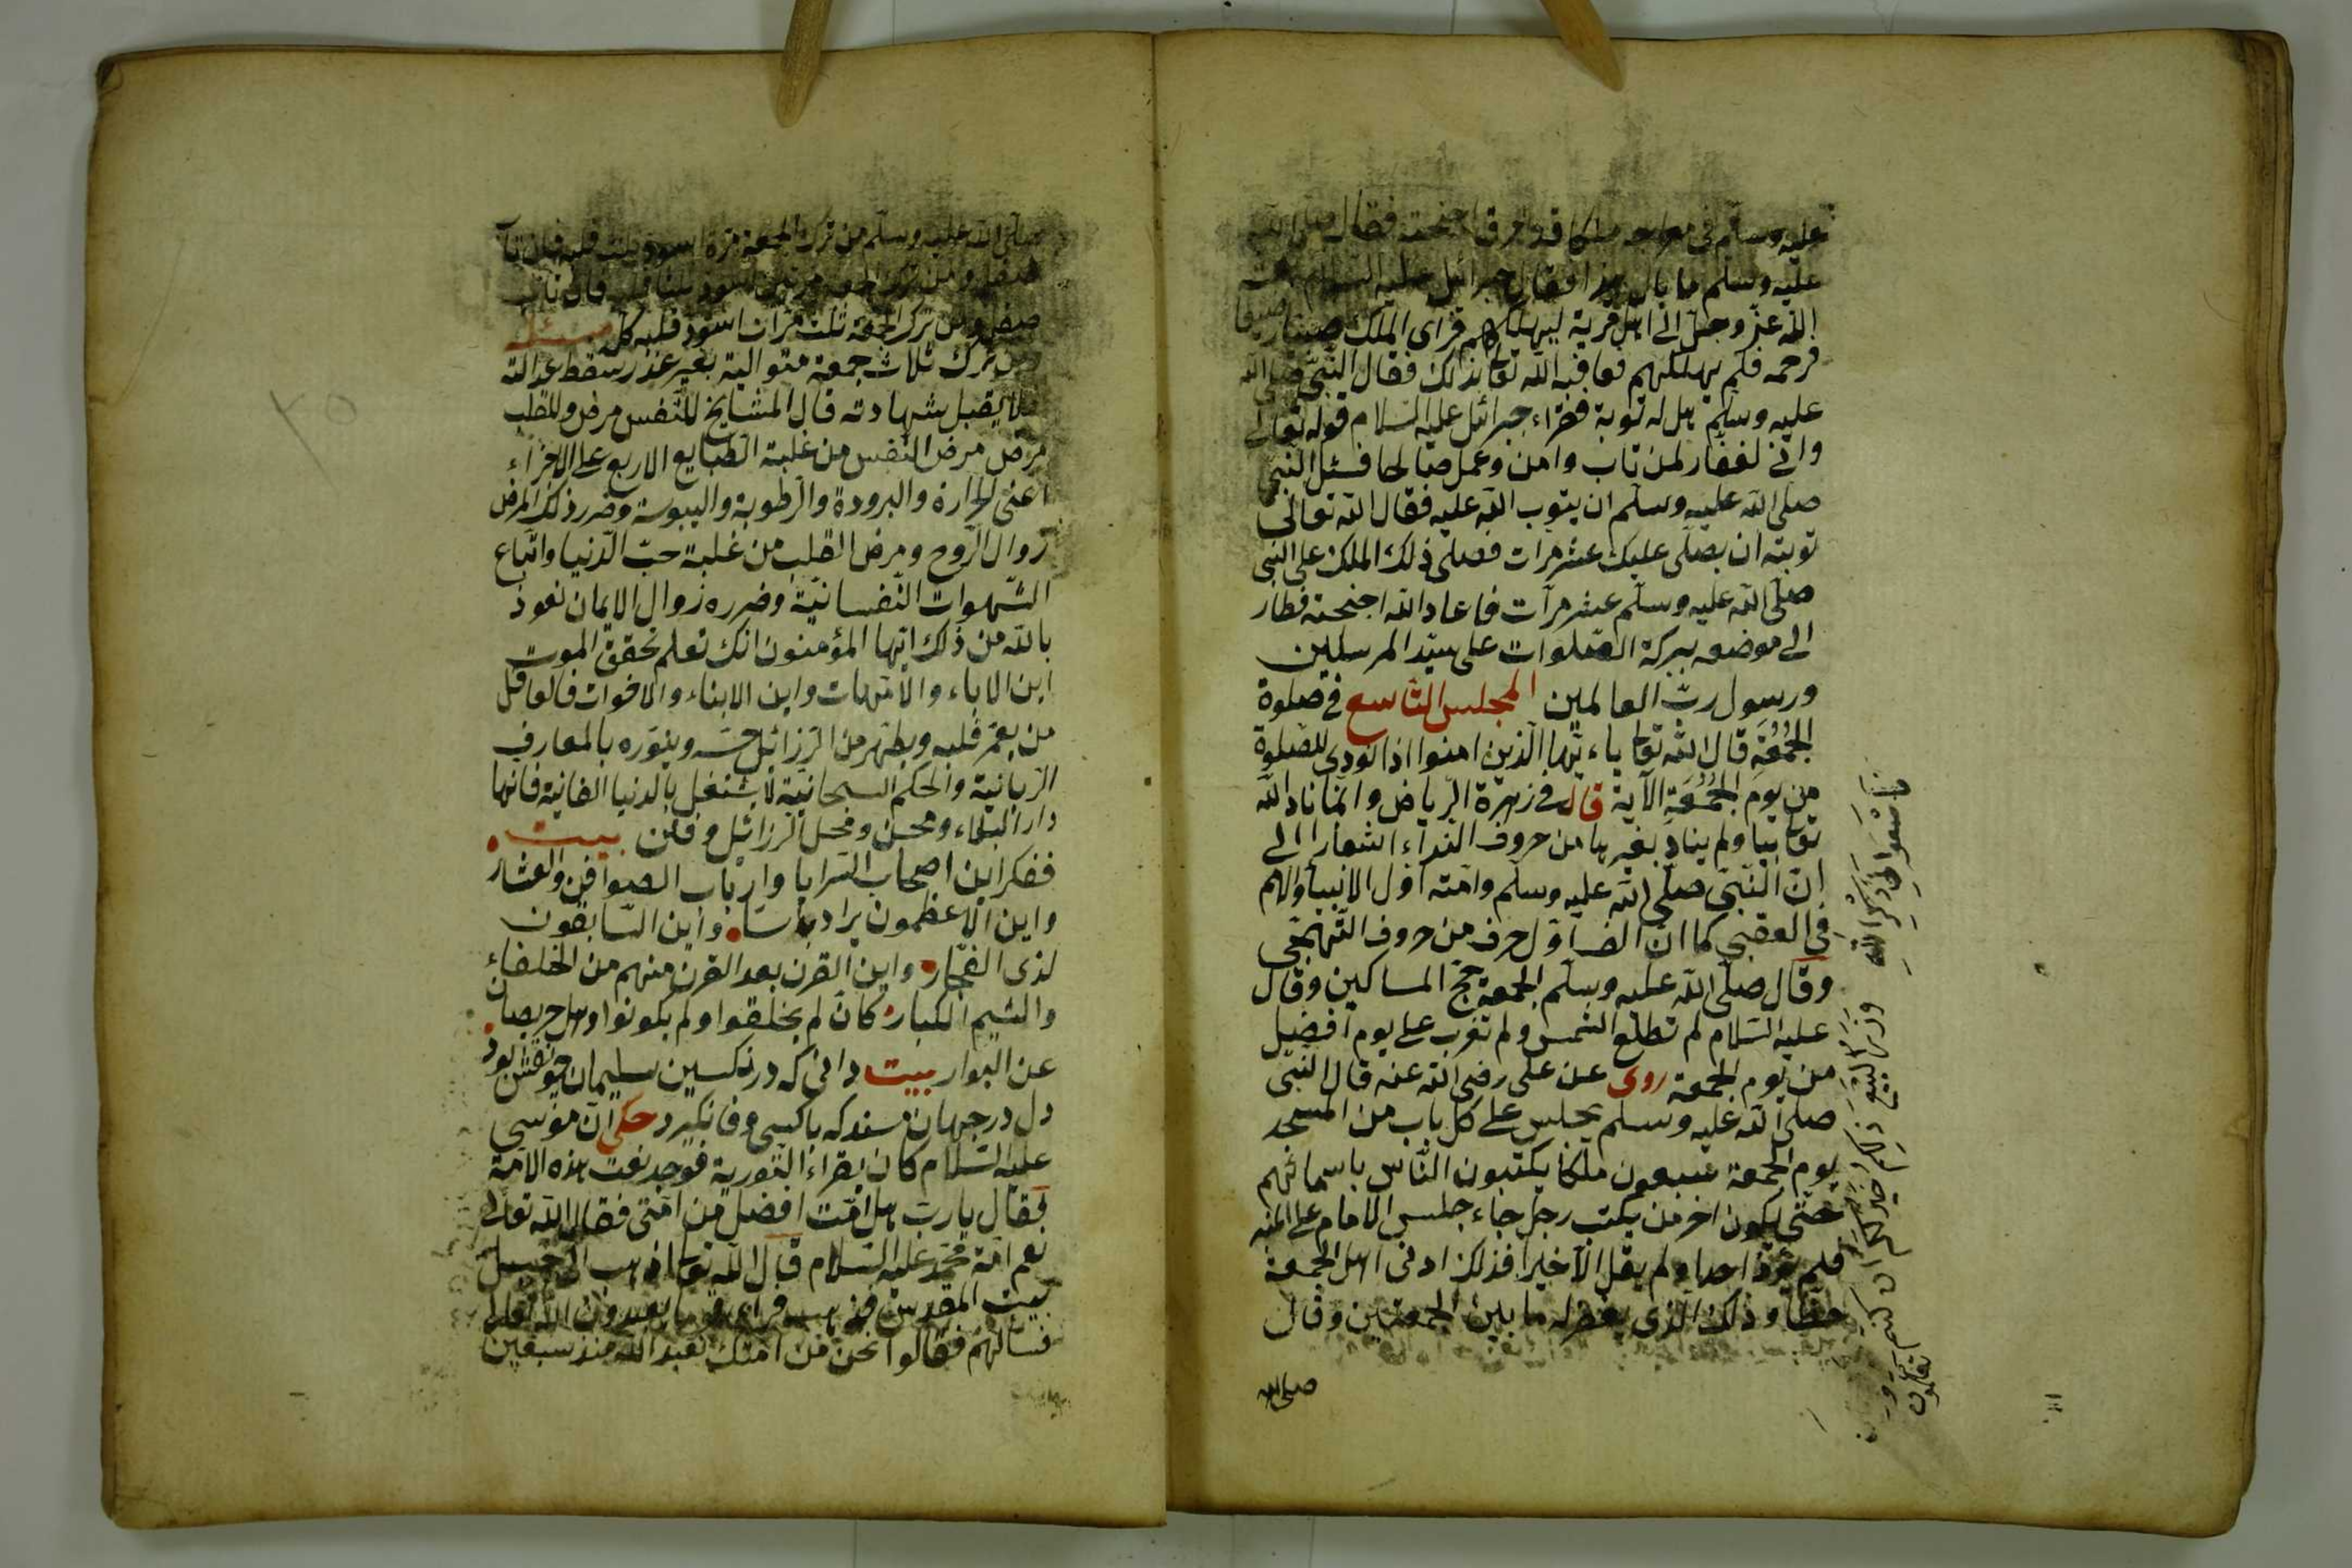 عليه وسلم في معراجه ملكا قد احرق اجنحته فقال صلى الله
عليه وسلم ما بال هذا فقال جبرائيل عليه السلام بعث
الله عز وجل الى اهل قرية ليهلكهم فراى الملك صغيرا رضيعا
فرحمه فلم يهلكهم فعاقبه الله تعالى بذلك فقال النبي صلى الله
عليه وسلم هل له توبة فقراء جبرائيل عليه السلام قوله تعالى
واني لغفار لمن تاب وامن وعمل صالحا فسئل النبي
صلى الله عليه وسلم ان يتوب الله عليه فقال الله تعالى
توبته ان يصلى عليك عشر مرات فصلى ذلك الملك على النبي
صلى الله عليه وسلم عشر مرات فاعاد الله اجنحته فطار
الى موضعه ببركة الصلوات على سيد المرسلين
ورسول رب العالمين المجلس التاسع في صلوة
الجمعة قال الله تعالى ياءيها الذين امنوا اذا نودي للصلوة
من يوم الجمعة الآية قال في زهرة الرياض وانما ناد الله
تعالى بيا ولم يناد بغيرها من حروف النداء اشعارا الى
ان النبي صلى الله عليه وسلم وامته اول الانبياء والامم
في العقبى كما ان الف اول حرف من حروف التهجى
وقال صلى الله عليه وسلم الجمعة حج المساكين وقال
عليه السلام لم تطلع الشمس ولم تغرب على يوم افضل
من يوم الجمعة روى عن على رضى الله عنه قال النبي
صلى الله عليه وسلم يجلس على كل باب من المسجد
يوم الجمعة سبعون ملكا يكتبون الناس باسمائهم
حتى يكون اخر من يكتب رجل جاء جلس الامام على المنبر
فلم يؤذ احدا ولم يقل الا خيرا فذلك ادنى اهل الجمعة
حظا وذلك الذى يغفر له ما بين الجمعتين وقال
صلى الله
فاسعوا الى ذكر الله وذروا البيع ذلكم خير لكم ان كنتم تعلمون
صلى الله عليه وسلم من ترك الجمعة مرة اسود ثلث قلبه فان تاب
صقل ومن ترك الجمعة مرتين اسود ثلثا قلبه فان تاب
صقل ومن ترك الجمعة ثلث مرات اسود قلبه كل مسئله
ومن ترك ثلاث جمعة متوالية بغير عذر سقط عدالته
فلا يقبل شهادته قال المشايخ للنفس مرض وللقلب
مرض مرض النفس من غلبة الطبايع الاربع على الاجزاء
اعنى الحرارة والبرودة والرطوبة واليبوسة وضرر ذلك المرض
زوال الروح ومرض القلب من غلبة حب الدنيا واتباع
الشهوات النفسانية وضرره زوال الايمان نعوذ
بالله من ذلك ايها المؤمنون انك تعلم تحقق الموت
اين الاباء والامهات واين الابناء والاخوات فالعاقل
من يعمر قلبه ويطهر من الرزائل وينوره بالمعارف
الربانية والحكم السبحانية لا يشتغل بالدنيا الفانية فانها
دار البلاء ومحن ومحل الرزائل وفتن بيت
ففكر اين اصحاب السرايا وارباب الصوافن والعشار
واين الاعظمون واين السابقون
لذى الفخار واين القرن بعد القرن منهم من الخلفاء
والشيم الكبار كان لم يخلقوا ولم يكونوا وهل
عن البوار بيت دانى كه در نكين سليمان چو نقش بود
دل در جهان مبند كه با كسى وفا نكرد حكى ان موسى
عليه السلام كان يقراء التورية فوجد نعت هذه الامة
فقال يا رب هل امت افضل من امتى فقال الله تعالى
نعم امة محمد عليه السلام قال الله تعالى اذهب الى جبل
بيت المقدس فذهب فراى يعبدون الله تعالى
فسالهم فقالوا نحن من امتك نعبد الله منذ سبعين